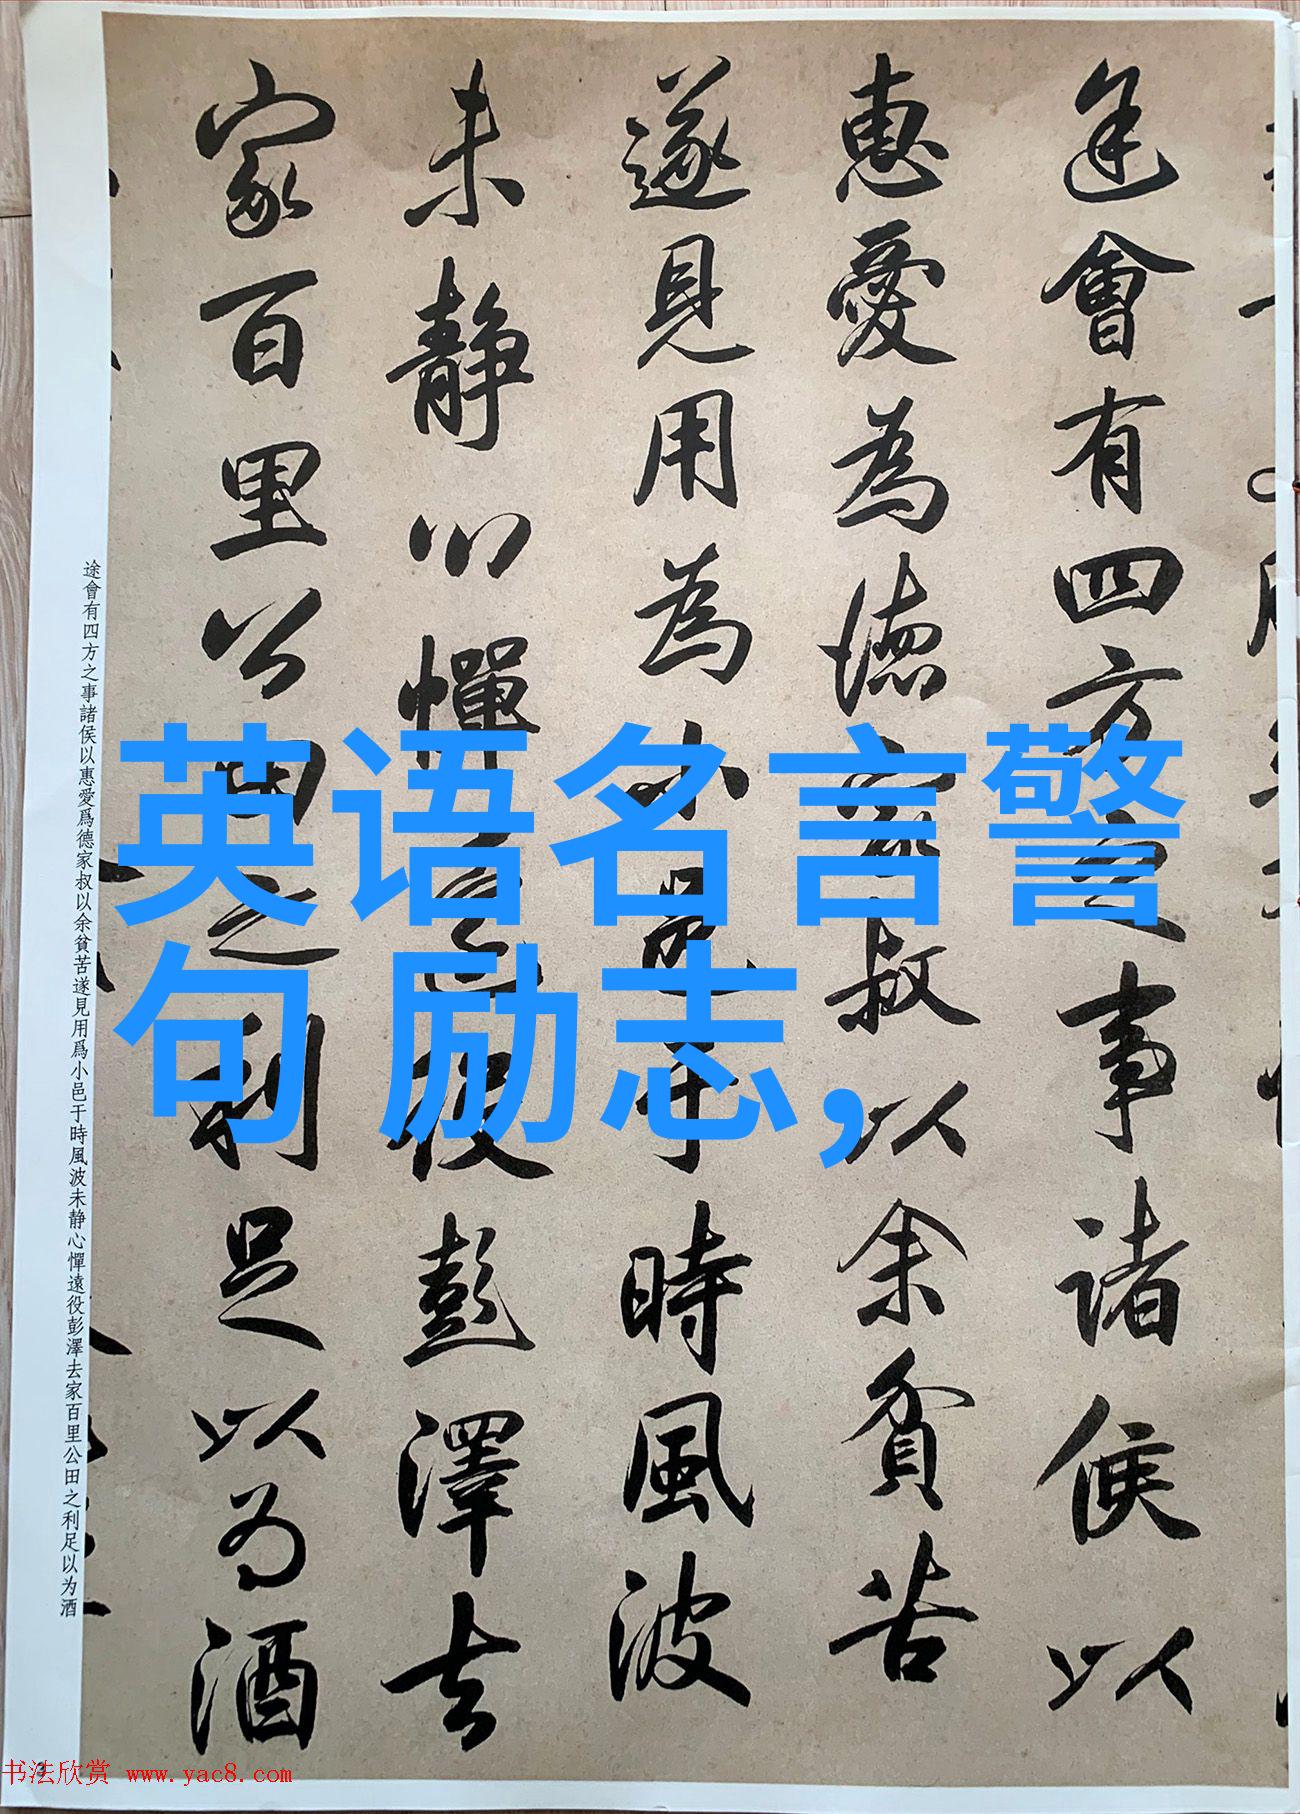 途會有四方之事諸侯以
惠愛為德家叔以余貧苦
遂見用為小邑于時風波
未靜心憚遠役彭澤去
家百里公田之利足以為酒
途會有四方之事諸侯以惠愛爲德家叔以余貧苦遂見用爲小邑于時風波未静心憚遠役彭澤去家百里公田之利足以为酒
英语名言警
句 励志,
书法欣赏 www.yac8.com